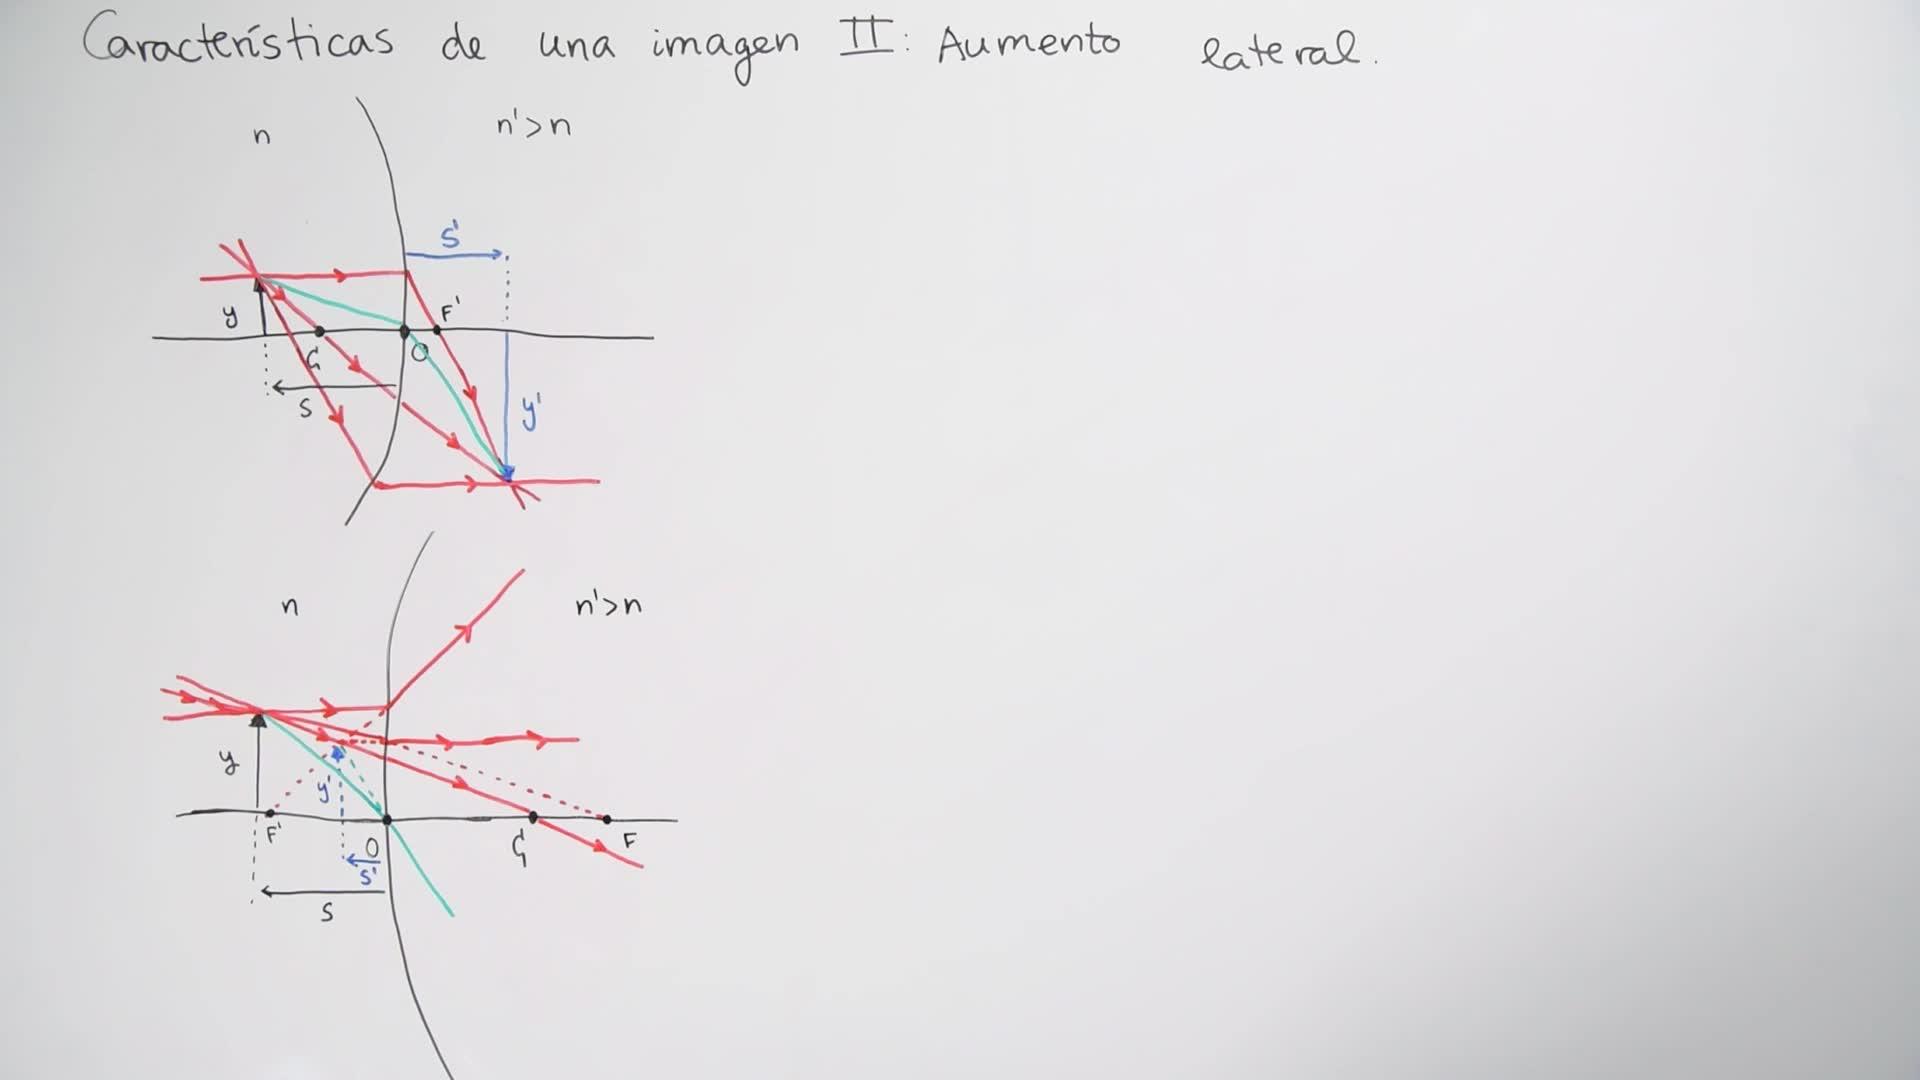 Características de una imagen II: Aumento lateral.
n
n'>n
s'
y
F'
O
s
y'
n
n'>n
y
y'
F'
O
F
s'
s